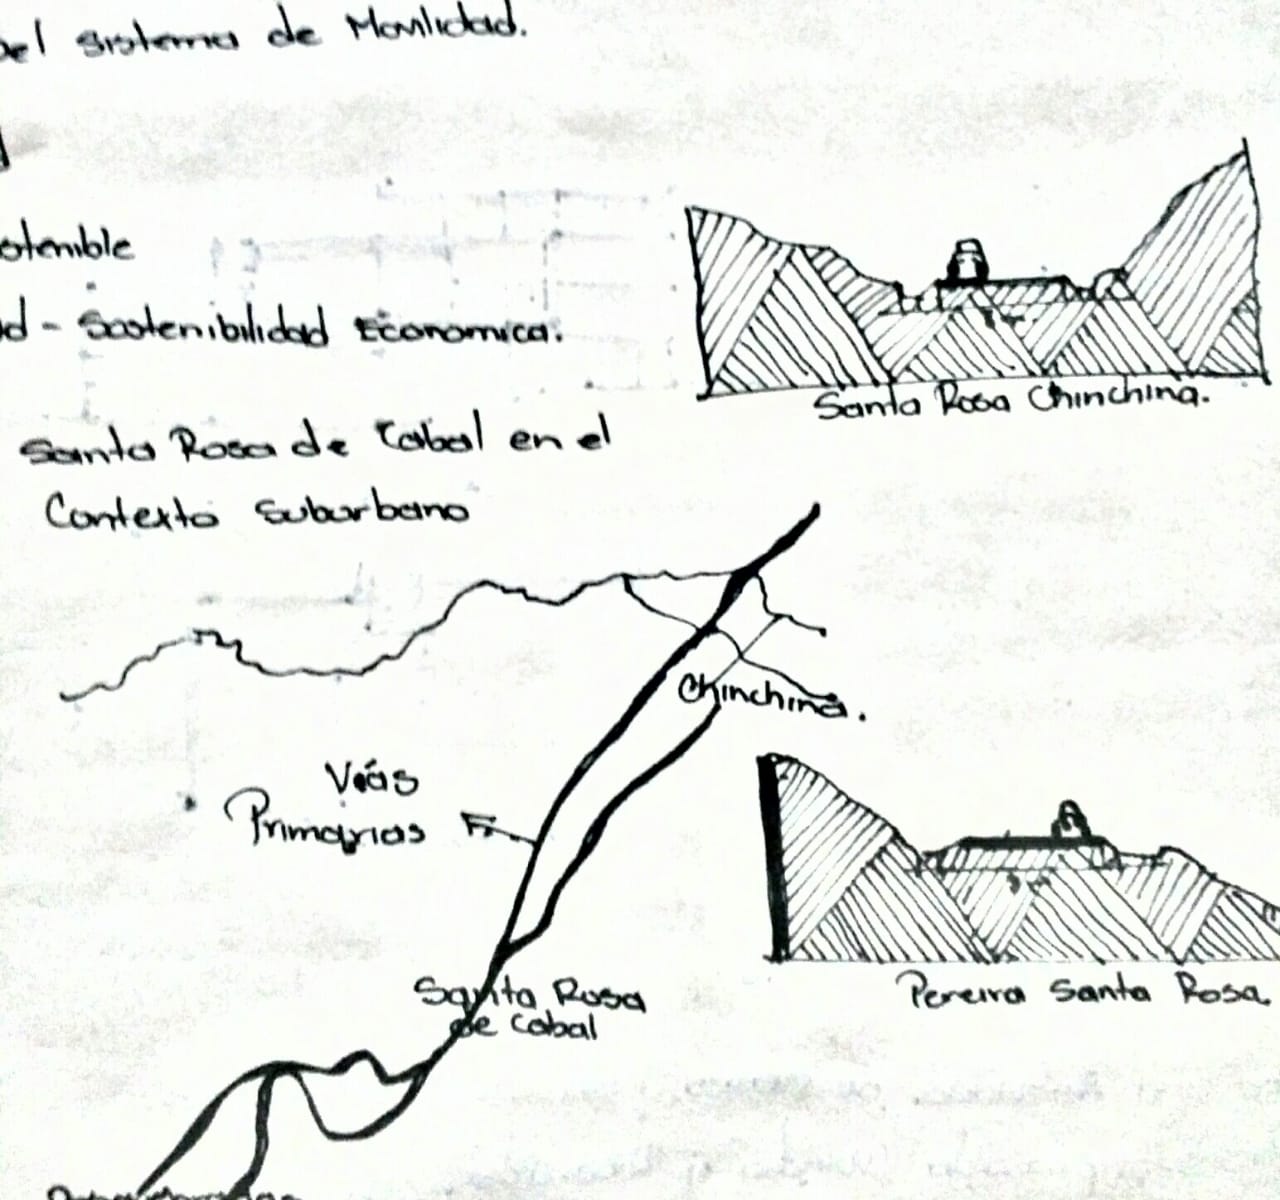 Del sistema de Movilidad.
ostenible
d - Sostenibilidad Economica.
Santa Rosa Chinchina.
Santa Rosa de Cabal en el
Contexto Suburbano
Chinchiná.
Viás
Primarias
Santa Rosa
de Cabal
Pereira Santa Rosa